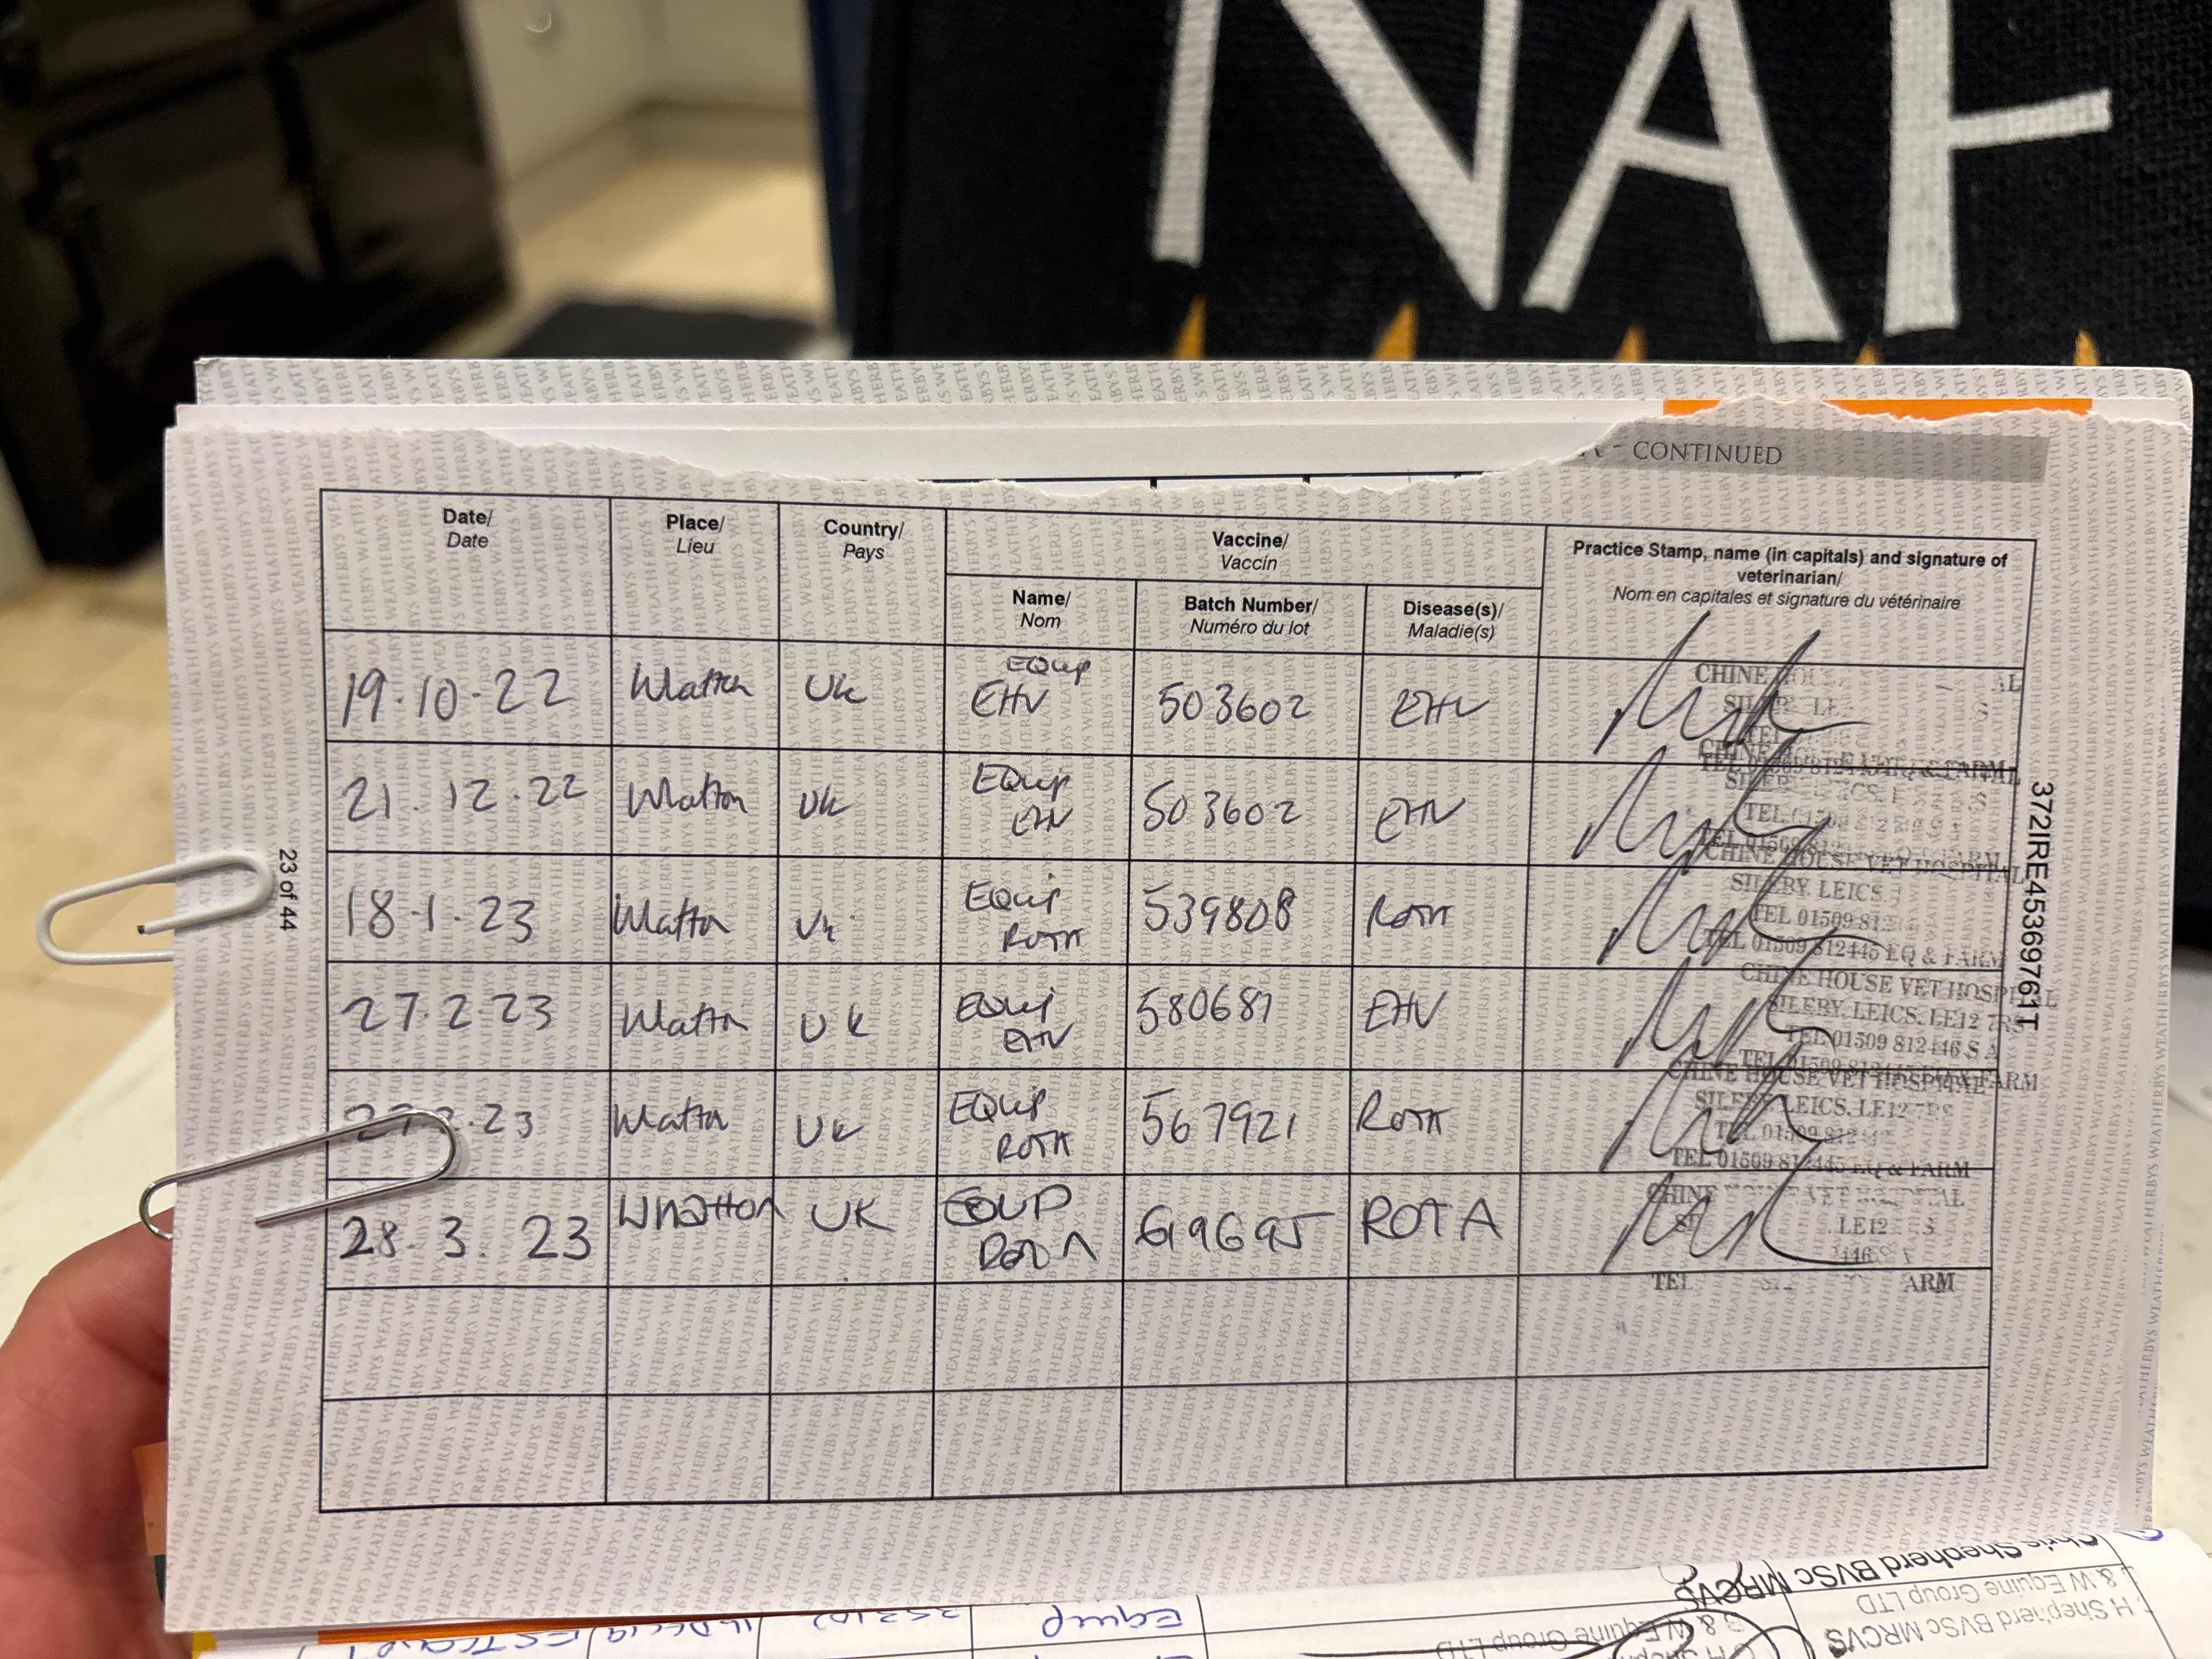 NAF
- CONTINUED
Date/ Place/ Country/ Vaccine/ Practice Stamp, name (in capitals) and signature of
Date Lieu Pays Vaccin veterinarian/
Name/ Batch Number/ Disease(s)/ Nom en capitales et signature du vétérinaire
Nom Numéro du lot Maladie(s)
19.10.22 Whatton UK Equip EHV 503602 EHV
CHINE
21.12.22 Whatton UK Equip EHV 503602 EHV
18.1.23 Whatton UK Equip ROTA 539808 ROTA
CHINE HOUSE VET HOSPITAL
SILEBY, LEICS
TEL 01509 812
TEL 01509 812445 EQ & FARM
27.2.23 Whatton UK Equip EHV 580681 EHV
CHINE HOUSE VET HOSPITAL
SILEBY, LEICS. LE12 7RS
TEL 01509 812446 S A
.23 Whatton UK Equip ROTA 567921 ROTA
CHINE HOUSE VET HOSPITAL
SILEBY, LEICS. LE12 7RS
TEL 01509 812445 EQ & FARM
28.3.23 Whatton UK EQUIP ROTA 619695 ROTA
CHINE HOUSE VET HOSPITAL
LE12
TEL ARM
23 of 44
372IRE45369761T
Equip
Chris Shepherd BVSc MRCVS
& W Equine Group LTD
H Shepherd BVSc MRCVS
& W Equine Group LTD